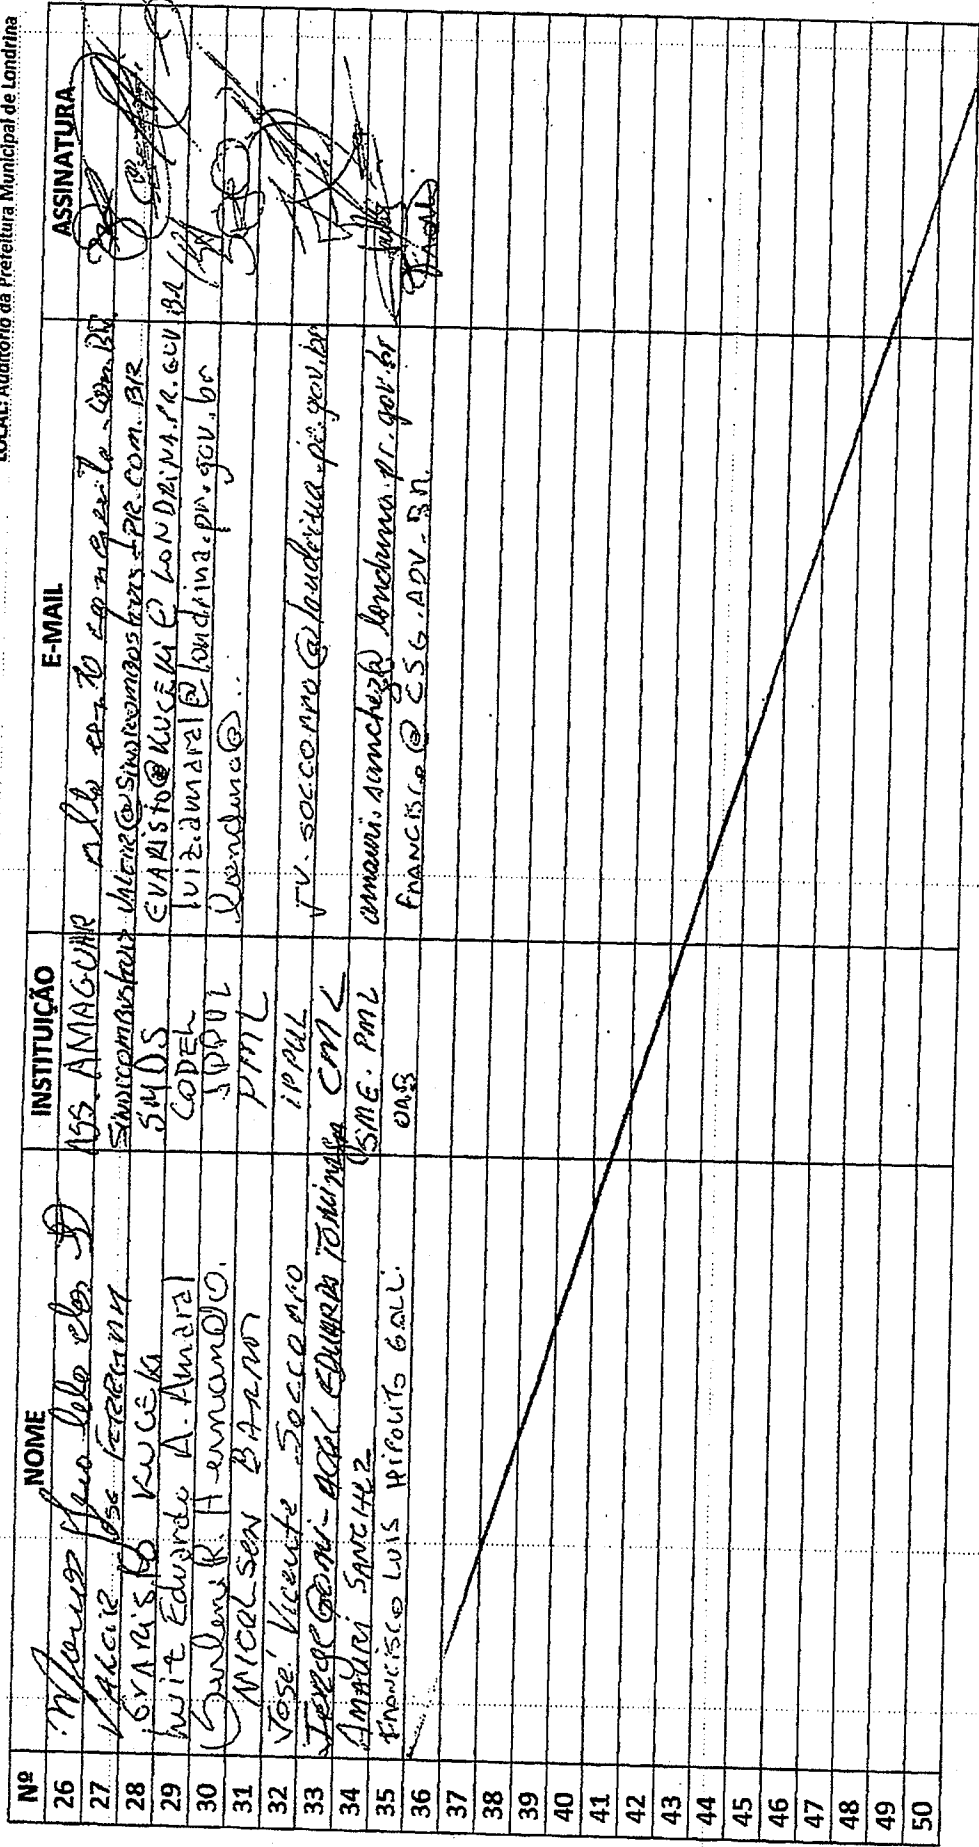 LOCAL: Auditório da Prefeitura Municipal de Londrina
Nº NOME INSTITUIÇÃO E-MAIL ASSINATURA
26 ASS. AMAGUAR
27 VALCIR José FERREIRA SINDICOMBUSTIVEIS
28 EVARISTO KUCEKI SMDS EVARISTO@KUCEKI@LONDRINA.PR.GOV.BR
29 Luiz Eduardo A. Amaral CODEL luiz.amaral@londrina.pr.gov.br
30 R. Hernandes. IPPUL londrina@...
31 NICOLSEN BARROS PML
32 José Vicente Socorro IPPUL JV.socorro@londrina.pr.gov.br
33 EDUARDO CML
34 AMAURI SANCHEZ SME. PML amauri.sanchez@londrina.pr.gov.br
35 FRANCISCO LUIS HIPOLITO GALLI. OAB FRANCISCO@CSG.ADV.BR.
36
37
38
39
40
41
42
43
44
45
46
47
48
49
50